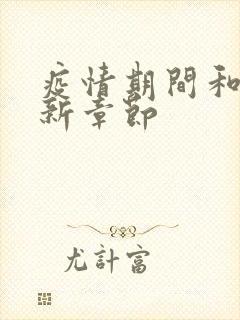 疫情期間和
新章節
尤計富